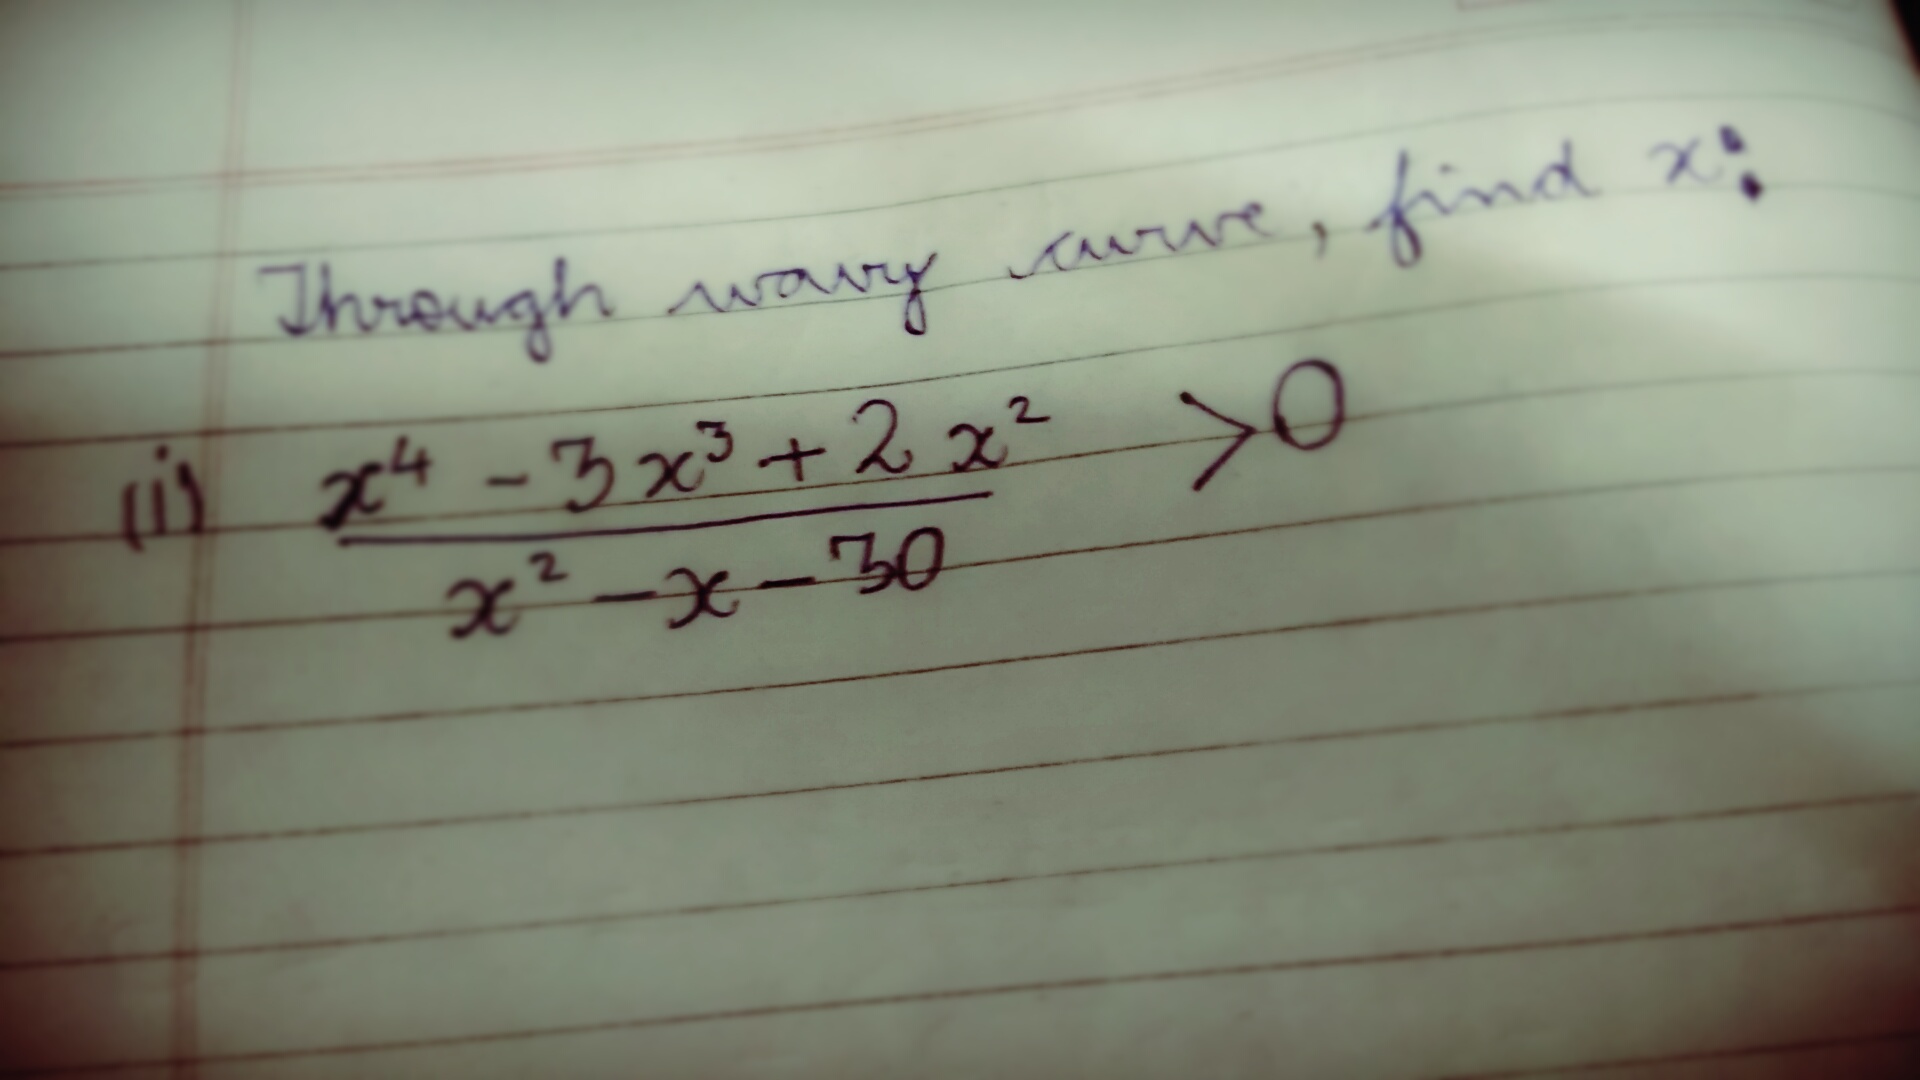 Through wavy curve, find x:
(i) x⁴ - 3x³ + 2x² > 0
x² - x - 30